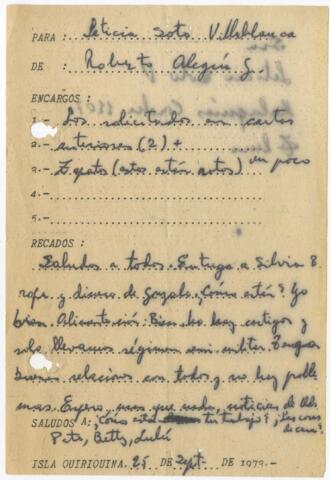 PARA : Leticia Soto Villablanca
DE : Roberto Alegría G.
ENCARGOS :
1.- Los solicitados en cartas
2.- anteriores (2) +
3.- Zapatos (estos están rotos) un poco
4.-
5.-
RECADOS :
Saludos a todos. Entrega a Silvia B
ropa y dinero de Gonzalo. ¿Cómo están? Yo
bien. Alimentación: Bien. No hay castigos y
solo llevamos régimen semi militar. Tengo
buenas relaciones con todos y no hay proble
mas. Espero, más que nada, noticias de Uds.
SALUDOS A: ¿Cómo está tu trabajo? ¿Las cosas
de casa?
Pato, Betty, Lulú
ISLA QUIRIQUINA, 25 DE Sept- DE 1973.-